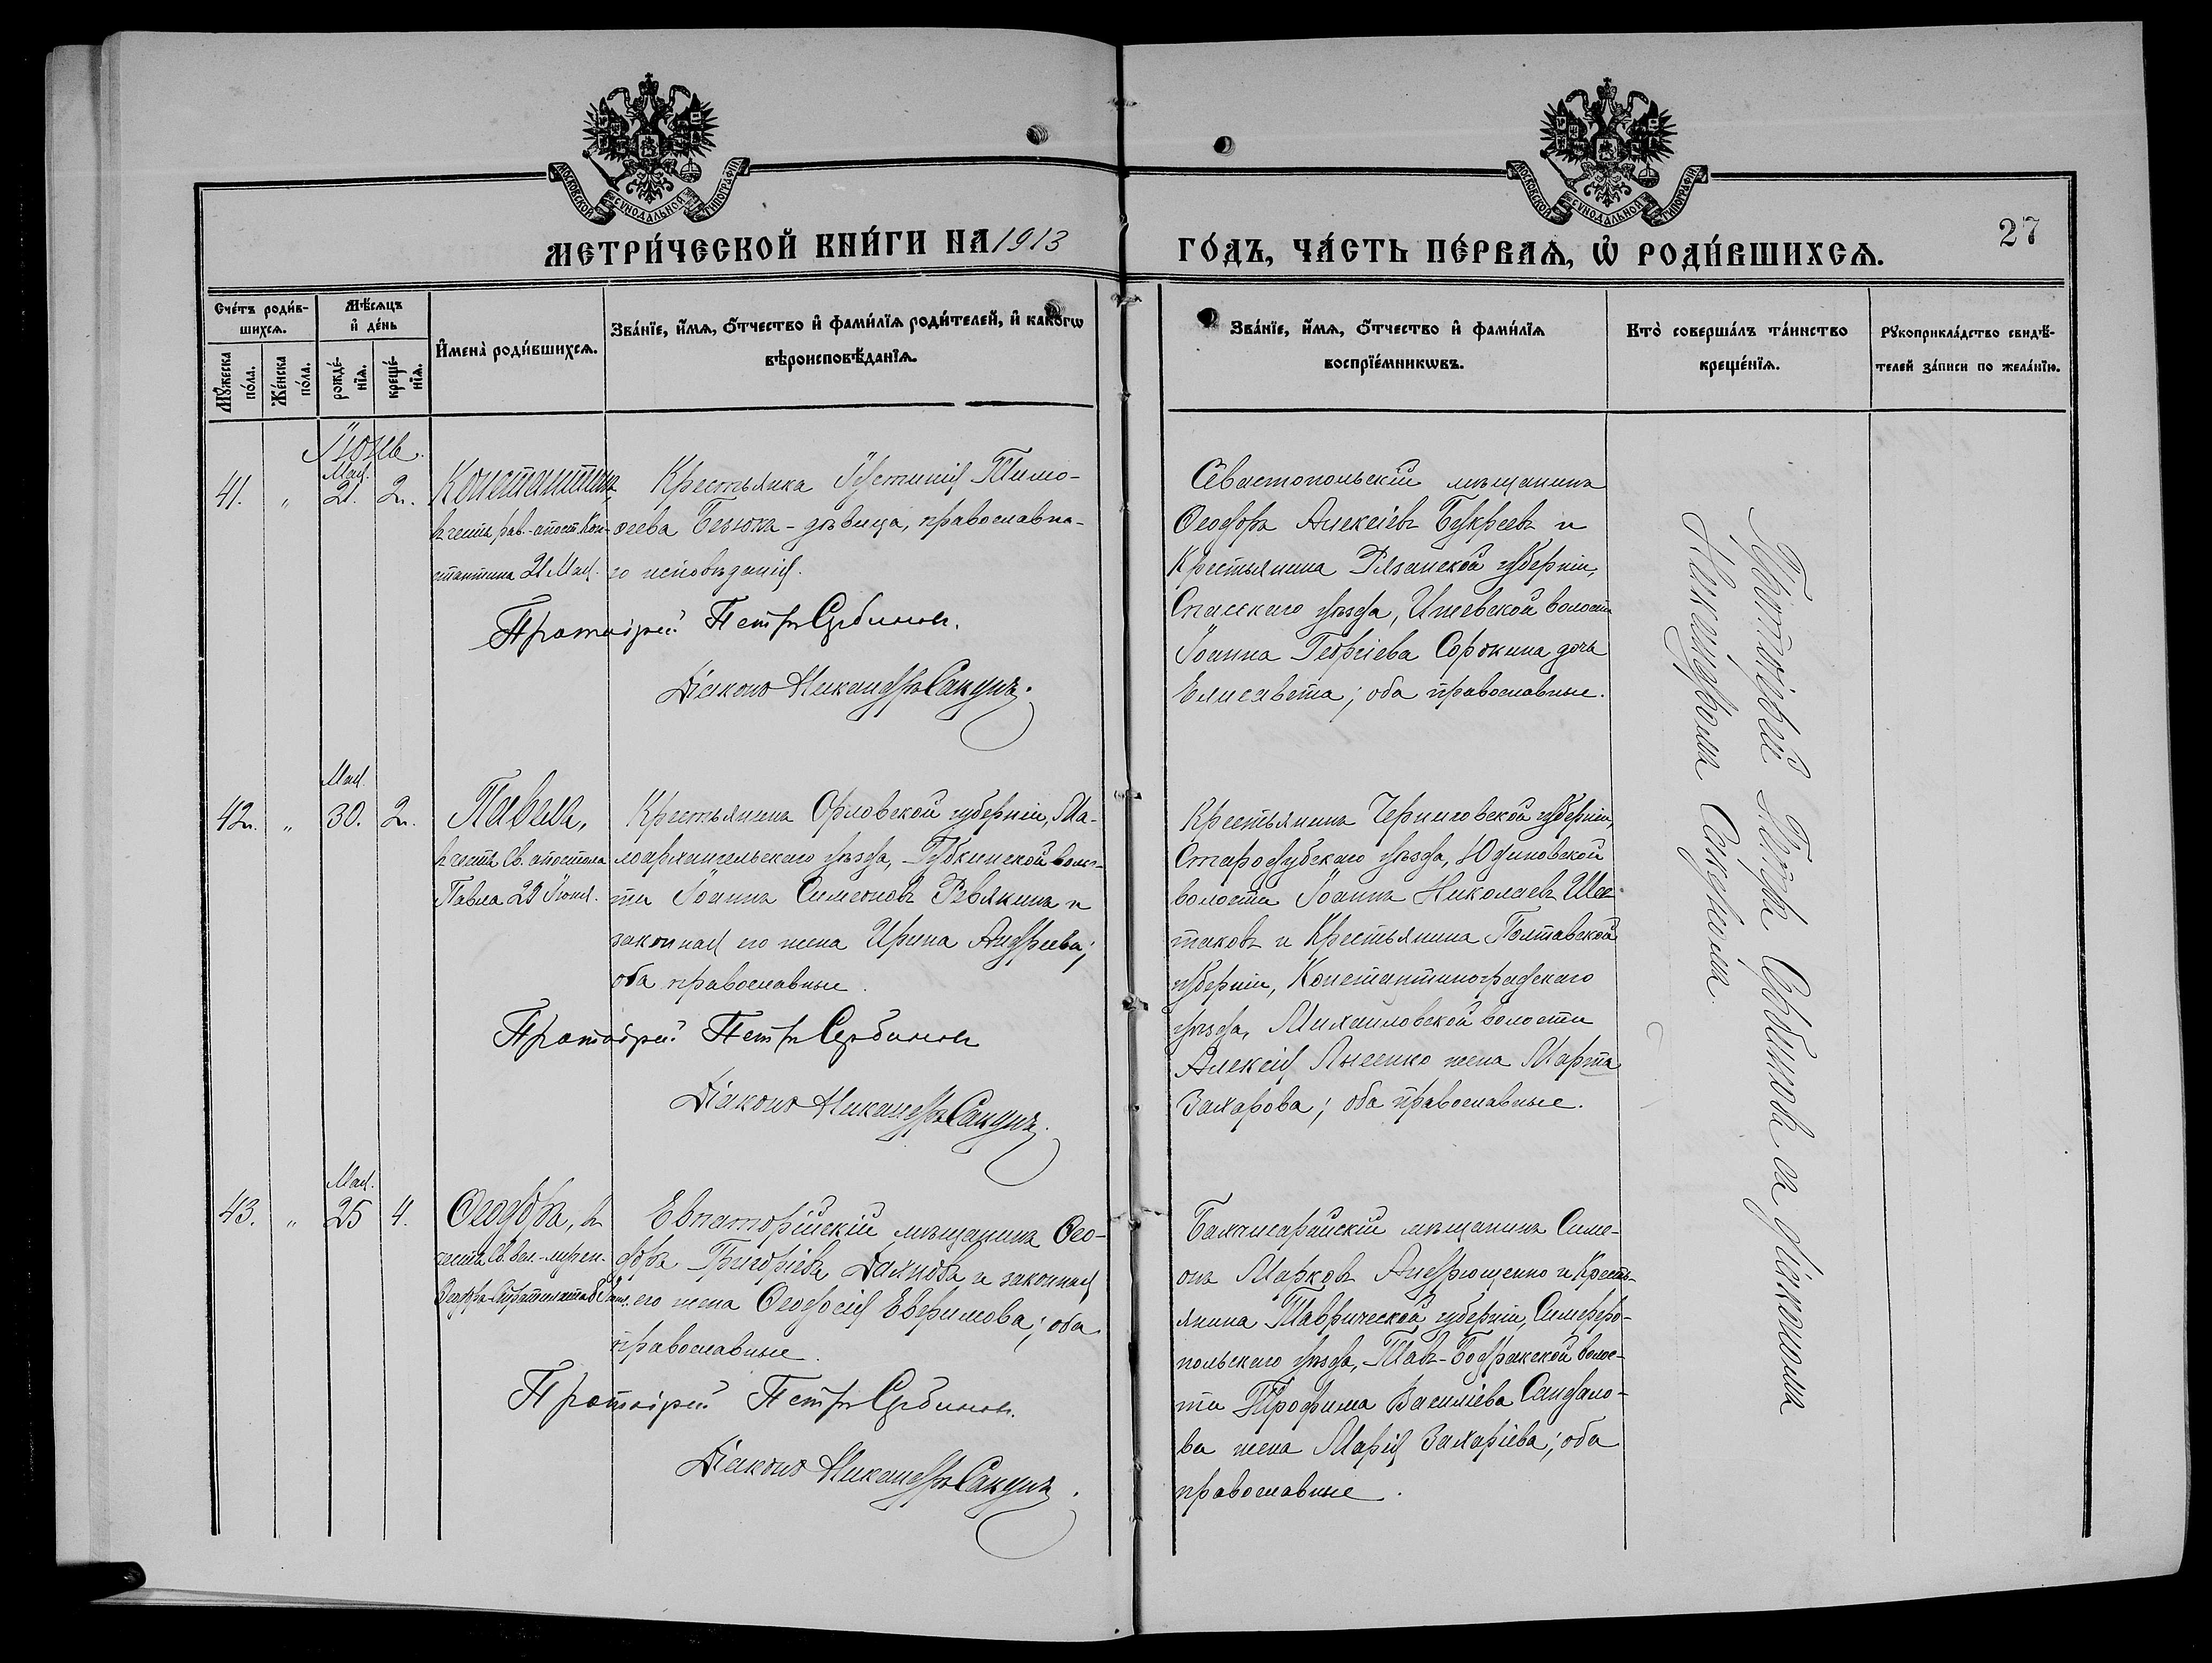 МОСКОВСКОЙ СѴНОДАЛЬНОЙ ТИПОГРАФІИ
МОСКОВСКОЙ СѴНОДАЛЬНОЙ ТИПОГРАФІИ
МЕТРИ́ЧЕСКОЙ КНИ́ГИ НА 1913
ГО́ДЪ, ЧА́СТЬ ПЕ́РВАѦ, Ѡ҆ РОДИ́ВШИХСѦ.
27
Сче́тъ роди́в-
шихсѧ.
Мꙋ́жеска по́ла.
Же́нска по́ла.
Мѣ́сѧцъ
и҆ де́нь
рожде́-
нїѧ.
креще́-
нїѧ.
И҆мена̀ роди́вшихсѧ.
Зва́нїе, и҆́мѧ, ѻ҆́тчество и҆ фами́лїѧ роди́телей, и҆ како́гѡ
вѣроисповѣ́данїѧ.
Зва́нїе, и҆́мѧ, ѻ҆́тчество и҆ фами́лїѧ
воспрїе́мникѡвъ.
Кто̀ соверша́лъ та́инство
креще́нїѧ.
Рꙋкоприкла́дство свидѣ́-
телей за́писи по жела́нїю.
Іюнь.
41. " Мая 21. 2. Константинъ,
въ честь рав.-апост. Кон-
стантина 21 Мая.
Крестьянка Іустинія Тимо-
ѳеева Безюка - дѣвица, православна-
го исповѣданія.
Протоіерей Петръ Сербиновъ.
Діаконъ Никандръ Сакунъ.
Севастопольскій мѣщанинъ
Ѳеодоръ Алексіевъ Букреевъ и
Крестьянина Рязанской губерніи,
Спасскаго уѣзда, Ижевской волости
Іоанна Георгіева Сорокина дочь
Елисавета; оба православные.
42. " Мая 30. 2. Павелъ,
въ честь Св. апостола
Павла 29 Іюня.
Крестьянинъ Орловской губерніи, Ма-
лоархангельскаго уѣзда, Губкинской волос-
ти Іоаннъ Симеоновъ Ревякинъ и
законная его жена Ирина Андреева;
оба православные.
Протоіерей Петръ Сербиновъ
Діаконъ Никандръ Сакунъ.
Крестьянинъ Черниговской губерніи,
Стародубскаго уѣзда, Юдиновской
волости Іоаннъ Николаевъ Шес-
таковъ и Крестьянина Полтавской
губерніи, Константиноградскаго
уѣзда, Михайловской волости
Алексія Лысенко жена Марѳа
Захарова; оба православные.
43. " Мая 25 4. Ѳеодоръ, въ
честь Св. вел.-мучен.
Ѳеодора Стратилата 8 Іюня.
Евпаторійскій мѣщанинъ Ѳео-
доръ Григоріевъ Даяновъ и законная
его жена Ѳеодосія Евѳимова; оба
православные.
Протоіерей Петръ Сербиновъ.
Діаконъ Никандръ Сакунъ.
Бахчисарайскій мѣщанинъ Симе-
онъ Марковъ Андрющенко и Кресть-
янина Таврической губерніи, Симферо-
польскаго уѣзда, Тавъ-Бодракской волос-
ти Трофима Василіева Сандало-
ва жена Марія Захаріева; оба
православные.
Протоіерей Петръ Сербиновъ съ діакономъ
Никандромъ Сакуномъ.